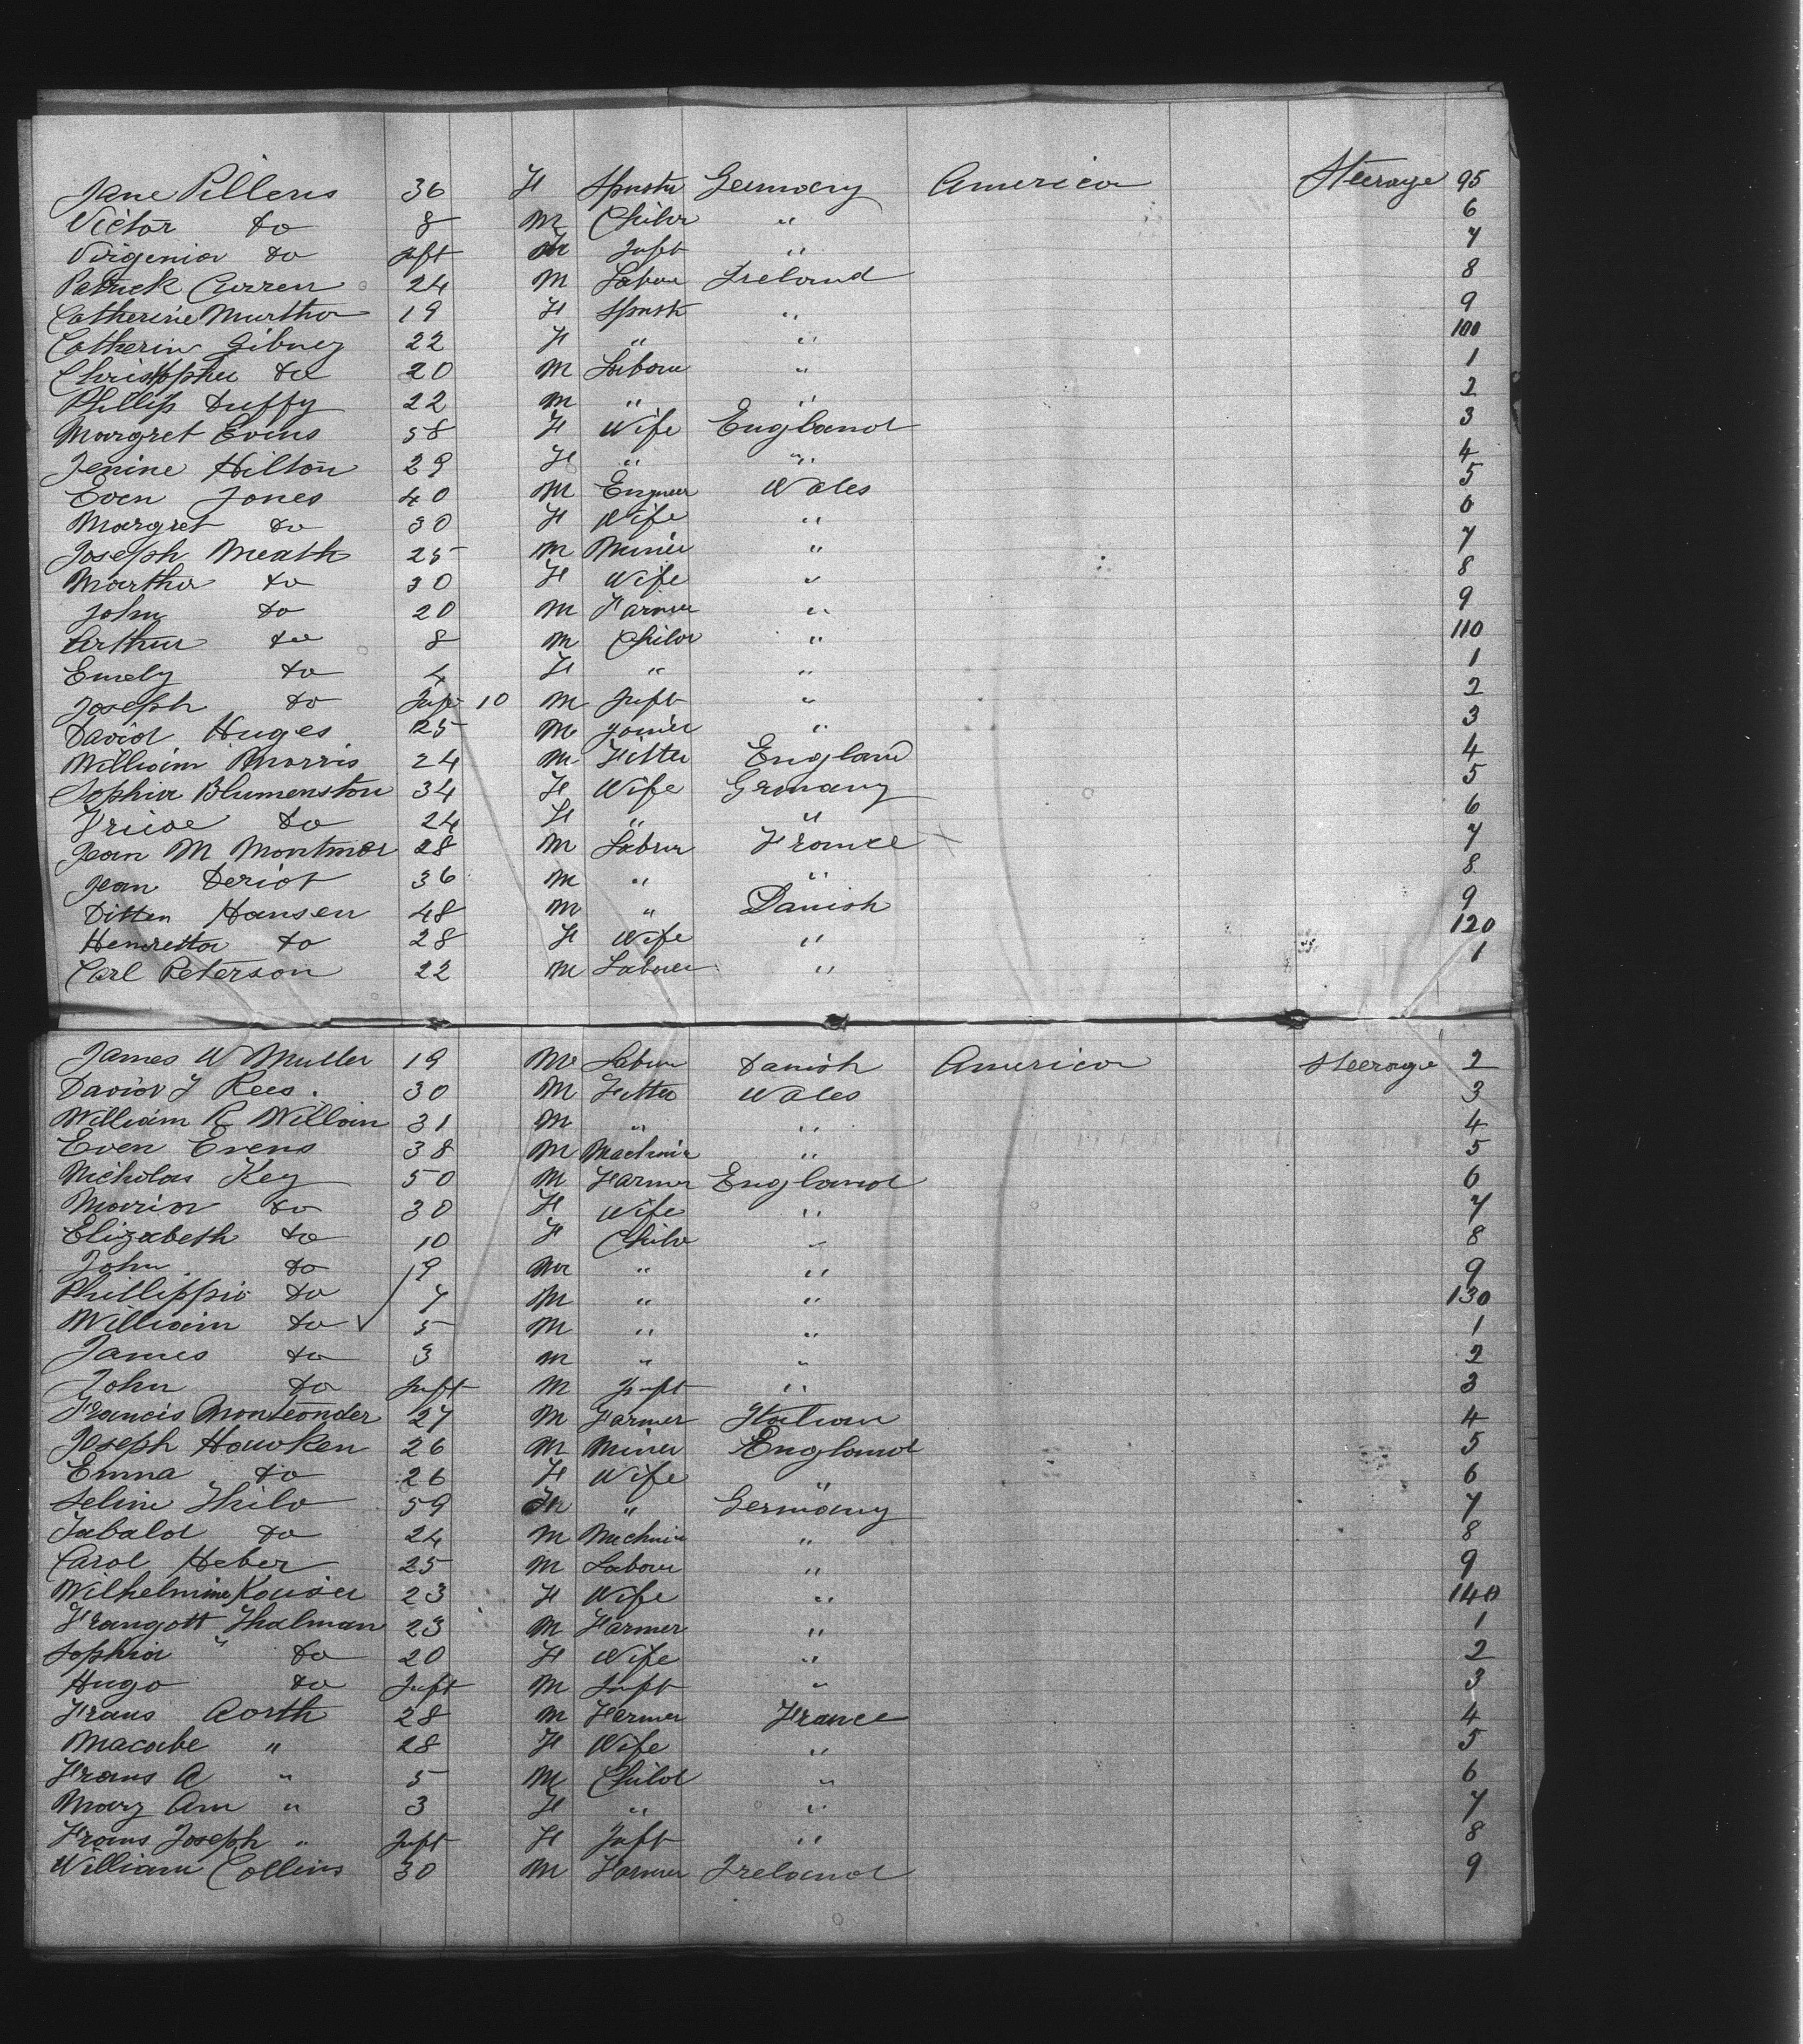 Jane Pillens 36 F Spnstr Germany America Steerage 95
Victor do 8 M Child " 6
Virgenia do Inft Inft " 7
Patrick Curren 24 M Labour Ireland 8
Catherine Murtha 19 F Spnst " 9
Catherin Gibney 22 F " " 100
Christopher do 20 M Labour " 1
Phillip Duffy 22 M " " 2
Margret Evins 58 F Wife England 3
Jenine Hilton 29 F " " 4
Even Jones 40 M Engneer Wales 5
Margret do 30 F Wife " 6
Joseph Meath 25 M Miner " 7
Martha do 30 F Wife " 8
John do 20 M Farmer " 9
Arthur do 8 M Child " 110
Emely do 4 F " " 1
Joseph do Inft 10 M Inft " 2
David Huges 25 M Joiner " 3
William Morris 24 M Fitter England 4
Sophia Blumenston 34 F Wife Grmany 5
do 24 F " " 6
Jean M Montmor 28 M Labour France 7
Jean Deriot 36 M " " 8
Ditten Hansen 48 M " Danish 9
Henretta do 28 F Wife " 120
Carl Peterson 22 M Labour " 1
James W Muller 19 M Labour Danish America Steerage 2
David J Rees 30 M Fitter Wales 3
William R William 31 M " " 4
Even Evens 38 M Machinis " 5
Nicholas Key 50 M Farmer England 6
Maria do 30 F Wife " 7
Elizabeth do 10 F Child " 8
John do 9 M " " 9
Phillippi do 7 M " " 130
William do 5 M " " 1
James do 3 M " " 2
John do Inft M Inft " 3
Francis Monteonder 27 M Farmer Italian 4
Joseph Hawken 26 M Miner England 5
Emma do 26 F Wife " 6
Seline Thilo 59 " Germany 7
Tabald do 24 M Mechnic " 8
Carol Heber 25 M Labour " 9
Wilhelmine Kouser 23 F Wife " 140
Frangott Thalman 23 M Farmer " 1
Sophia " do 20 F Wife " 2
Hugo do Inft M Inft " 3
Frans Aorth 28 M Farmer France 4
Macabe " 28 F Wife " 5
Frans A " 5 M Child " 6
Mary Ann " 3 F " " 7
Frans Joseph " Inft F Inft " 8
William Collins 30 M Farmer Ireland 9